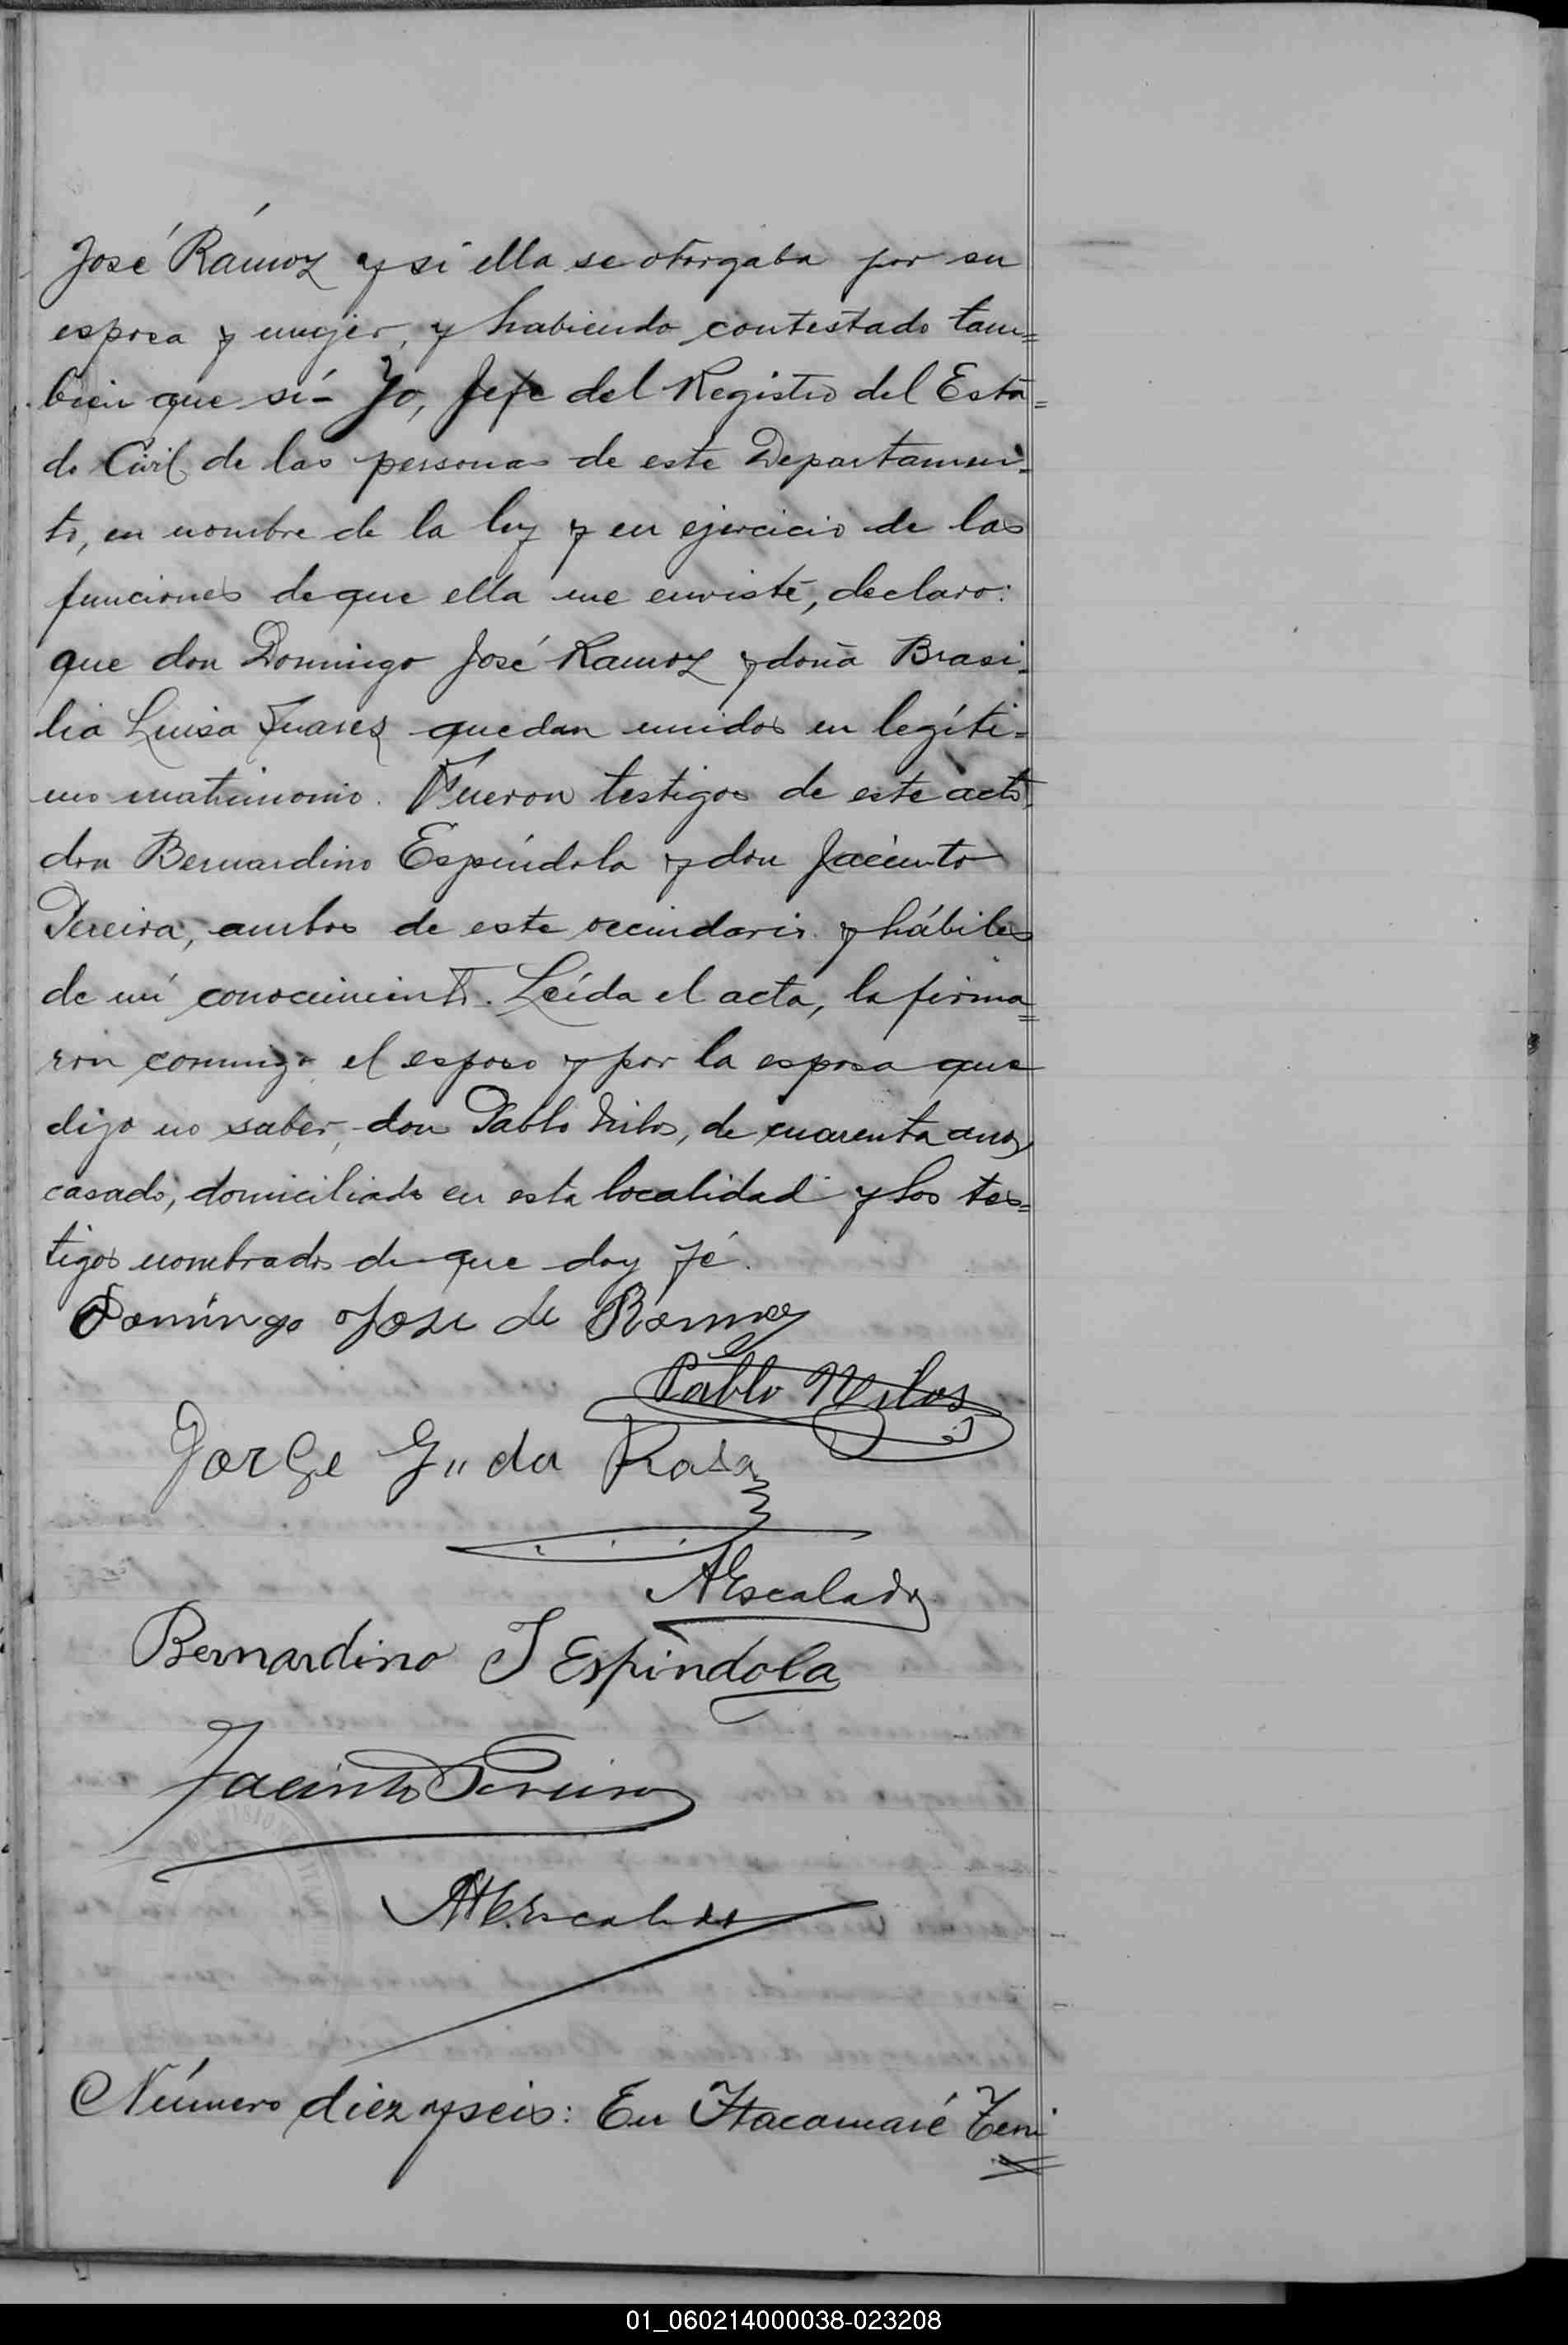 José Rámoz y si ella se otorgaba por su
esposa y mujer, y habiendo contestado tam=
bien que sí - Yo, Jefe del Registro del Esta=
do Civil de las personas de este Departamen=
to, en nombre de la ley y en ejercicio de las
funciones de que ella me enviste, declaro:
que don Domingo José Ramoz y doña Brasi=
lia Luisa Juarez quedan unidos en legíti=
mo matrimonio. Fueron testigos de este acto,
don Bernardino Espíndola y don Jacinto
Pereira, ambos de este vecindario y hábiles
de mi conocimiento. Leída el acta, la firma=
ron conmigo el esposo y por la esposa que
dijo no saber, don Pablo Milos, de cuarenta años
casado, domiciliado en esta localidad y los tes=
tigos nombrados de que doy fé.
Domingo Jose de Ramoz
Pablo Milos
Jorge G. da Rosa
AEscalada
Bernardino J Espindola
Jacinto Pereira
AEscalada
Número diez y seis: En Itacamaré Terri